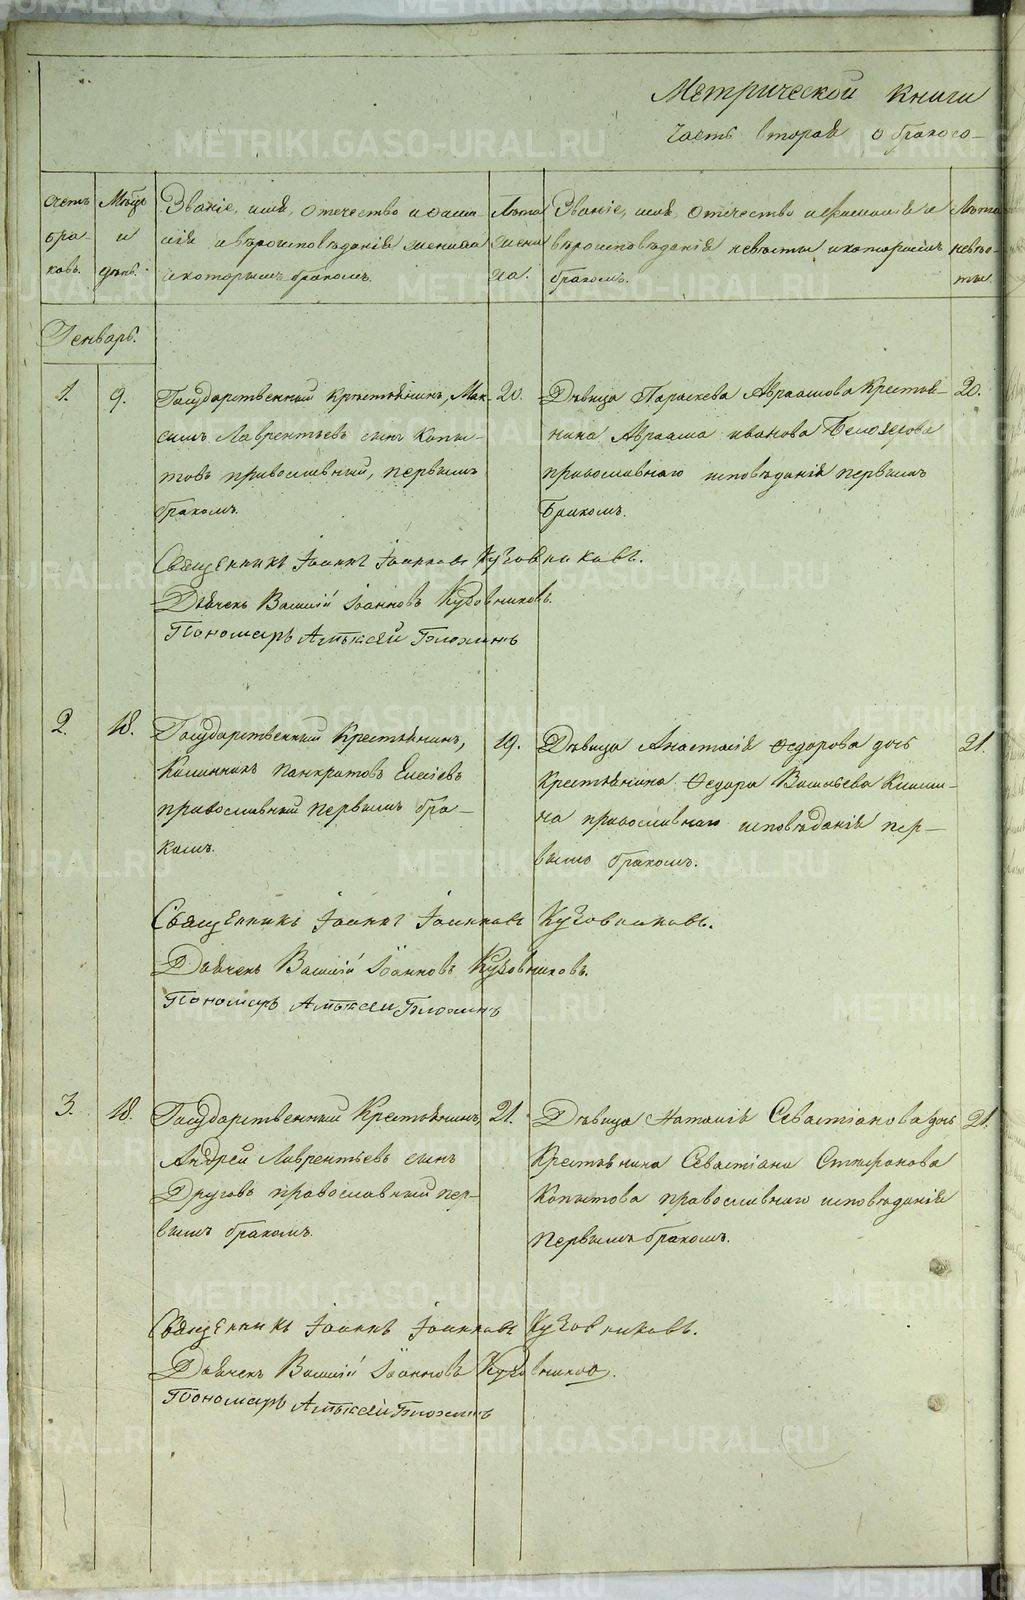 Метрической Книги
часть вторая о бракосо-
Счетъ бра- ковъ.
Мѣсяц и день.
Званіе, имя, отечество и фами-
лія и вѣроисповѣданія жениха
и которымъ бракомъ.
Лѣта жени ха.
Званіе, имя, отечество и фамилія и
вѣроисповѣданія невѣсты и которымъ
бракомъ.
Лѣта невѣс- ты.
Генварь.
1. 9. Государственный крестьянинъ, Мак- 20. Дѣвица Параскева Авраамова Крестья- 20.
симъ Лаврентьевъ сынъ Копы- нина Авраама иванова Белозерова
товъ православный, первымъ православнаго исповѣданія первымъ
бракомъ. Бракомъ.
Священникъ Іоаннъ Іоанновъ Кузовниковъ.
Дьячекъ Василій Іоанновъ Кузовниковъ.
Пономарь Алексѣй
2. 18. Государственный Крестьянинъ, 19. Дѣвица Анастасія Ѳедорова дочь 21.
Калинникъ Панкратовъ Елисѣевъ Крестьянина Ѳедора Васильева
православный первымъ бра- на православнаго исповѣданія пер-
комъ. вымъ бракомъ.
Священникъ Іоаннъ Іоанновъ Кузовниковъ.
Дьячекъ Василій Іоанновъ Кузовниковъ.
Пономарь Алексѣй
3. 18. Государственный Крестьянинъ, 21. Дѣвица Наталія Севастіанова дочь 21.
Андрей Лаврентьевъ сынъ Крестьянина Севастіана Стефанова
Друговъ православный пер- Копытова православнаго исповѣданія
вымъ бракомъ. Первымъ бракомъ.
Священникъ Іоаннъ Іоанновъ Кузовниковъ.
Дьячекъ Василій Іоанновъ Кузовниковъ.
Пономарь Алексѣй
METRIKI.GASO-URAL.RU